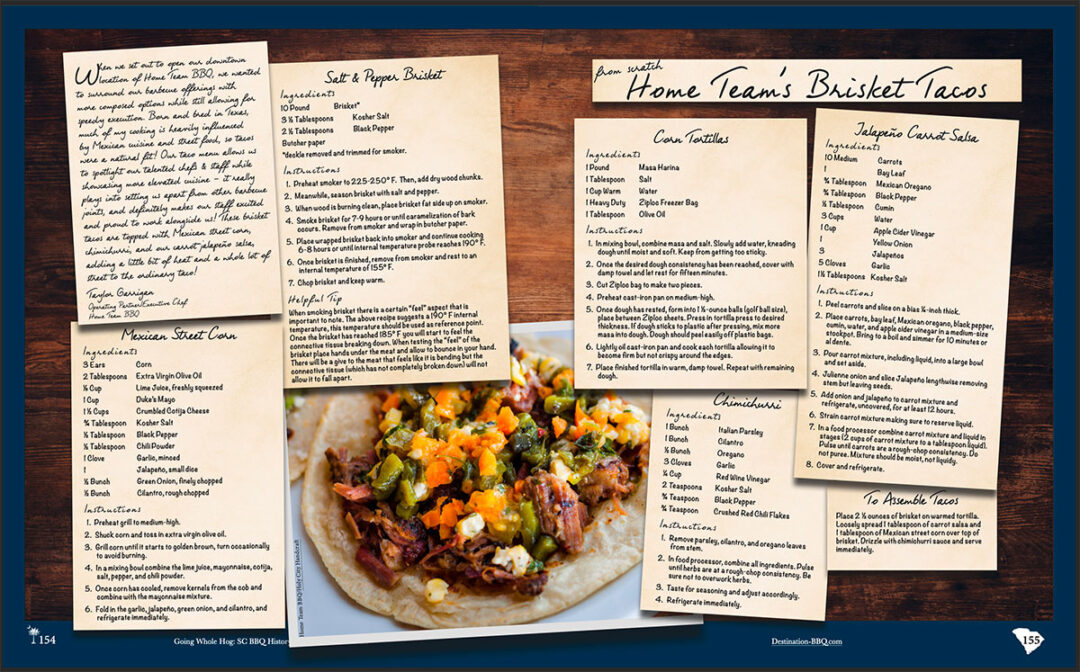 When we set out to open our downtown
location of Home Team BBQ, we wanted
to surround our barbecue offerings with
more composed options while still allowing for
speedy execution. Born and bred in Texas,
much of my cooking is heavily influenced
by Mexican cuisine and street food, so tacos
were a natural fit! Our taco menu allows us
to spotlight our talented chefs & staff while
showcasing more elevated cuisine – it really
plays into setting us apart from other barbecue
joints, and definitely makes our staff excited
and proud to work alongside us! These brisket
tacos are topped with Mexican street corn,
chimichurri, and our carrot jalapeño salsa,
adding a little bit of heat and a whole lot of
street to the ordinary taco!
Taylor Garrigan
Operating Partner/Executive Chef
Home Team BBQ
Salt & Pepper Brisket
Ingredients
10 Pound Brisket*
3 ½ Tablespoons Kosher Salt
2 ½ Tablespoons Black Pepper
Butcher paper
*deckle removed and trimmed for smoker.
Instructions
1. Preheat smoker to 225-250° F. Then, add dry wood chunks.
2. Meanwhile, season brisket with salt and pepper.
3. When wood is burning clean, place brisket fat side up on smoker.
4. Smoke brisket for 7-9 hours or until caramelization of bark
occurs. Remove from smoker and wrap in butcher paper.
5. Place wrapped brisket back into smoker and continue cooking
6-8 hours or until internal temperature probe reaches 190° F.
6. Once brisket is finished, remove from smoker and rest to an
internal temperature of 155° F.
7. Chop brisket and keep warm.
Helpful Tip
When smoking brisket there is a certain "feel" aspect that is
important to note. The above recipe suggests a 190° F internal
temperature, this temperature should be used as reference point.
Once the brisket has reached 185° F you will start to feel the
connective tissue breaking down. When testing the "feel" of the
brisket place hands under the meat and allow to bounce in your hand.
There will be a give to the meat that feels like it is bending but the
connective tissue (which has not completely broken down) will not
allow it to fall apart.
Mexican Street Corn
Ingredients
3 Ears Corn
2 Tablespoons Extra Virgin Olive Oil
Cup Lime Juice, freshly squeezed
1 Cup Duke's Mayo
1 ½ Cups Crumbled Cotija Cheese
¾ Tablespoon Kosher Salt
½ Tablespoon Black Pepper
½ Tablespoon Chili Powder
1 Clove Garlic, minced
1 Jalapeño, small dice
½ Bunch Green Onion, finely chopped
½ Bunch Cilantro, rough chopped
Instructions
1. Preheat grill to medium-high.
2. Shuck corn and toss in extra virgin olive oil.
3. Grill corn until it starts to golden brown, turn occasionally
to avoid burning.
4. In a mixing bowl combine the lime juice, mayonnaise, cotija,
salt, pepper, and chili powder.
5. Once corn has cooled, remove kernels from the cob and
combine with the mayonnaise mixture.
6. Fold in the garlic, jalapeño, green onion, and cilantro, and
refrigerate immediately.
Home Team BBQ/Holy City Handcraft
154
Going Whole Hog: SC BBQ Histor
from scratch
Home Team's Brisket Tacos
Corn Tortillas
Ingredients
1 Pound Masa Harina
1 Tablespoon Salt
1 Cup Warm Water
1 Heavy Duty Ziploc Freezer Bag
1 Tablespoon Olive Oil
Instructions
1. In mixing bowl, combine masa and salt. Slowly add water, kneading
dough until moist and soft. Keep from getting too sticky.
2. Once the desired dough consistency has been reached, cover with
damp towel and let rest for fifteen minutes.
3. Cut Ziploc bag to make two pieces.
4. Preheat cast-iron pan on medium-high.
5. Once dough has rested, form into 1 ½-ounce balls (golf ball size),
place between Ziploc sheets. Press in tortilla press to desired
thickness. If dough sticks to plastic after pressing, mix more
masa into dough. Dough should peel easily off plastic bags.
6. Lightly oil cast-iron pan and cook each tortilla allowing it to
become firm but not crispy around the edges.
7. Place finished tortilla in warm, damp towel. Repeat with remaining
dough.
Jalapeño Carrot Salsa
Ingredients
10 Medium Carrots
1 Bay Leaf
¾ Tablespoon Mexican Oregano
¾ Tablespoon Black Pepper
½ Tablespoon Cumin
3 Cups Water
1 Cup Apple Cider Vinegar
1 Yellow Onion
3 Jalapeños
5 Cloves Garlic
1 ½ Tablespoons Kosher Salt
Instructions
1. Peel carrots and slice on a bias ¼-inch thick.
2. Place carrots, bay leaf, Mexican oregano, black pepper,
cumin, water, and apple cider vinegar in a medium-sized
stockpot. Bring to a boil and simmer for 10 minutes or
al dente.
3. Pour carrot mixture, including liquid, into a large bowl
and set aside.
4. Julienne onion and slice Jalapeño lengthwise removing
stem but leaving seeds.
5. Add onion and jalapeños to carrot mixture and
refrigerate, uncovered, for at least 12 hours.
6. Strain carrot mixture making sure to reserve liquid.
7. In a food processor combine carrot mixture and liquid in
stages (2 cups of carrot mixture to a tablespoon liquid).
Pulse until carrots are a rough-chop consistency. Do
not puree. Mixture should be moist, not liquidy.
8. Cover and refrigerate.
Chimichurri
Ingredients
1 Bunch Italian Parsley
1 Bunch Cilantro
½ Bunch Oregano
3 Cloves Garlic
¼ Cup Red Wine Vinegar
2 Teaspoons Kosher Salt
¾ Teaspoon Black Pepper
¾ Teaspoon Crushed Red Chili Flakes
Instructions
1. Remove parsley, cilantro, and oregano leaves
from stem.
2. In food processor, combine all ingredients. Pulse
until herbs are at a rough-chop consistency. Be
sure not to overwork herbs.
3. Taste for seasoning and adjust accordingly.
4. Refrigerate immediately.
To Assemble Tacos
Place 2 ½ ounces of brisket on warmed tortilla.
Loosely spread 1 tablespoon of carrot salsa and
1 tablespoon of Mexican street corn over top of
brisket. Drizzle with chimichurri sauce and serve
immediately.
Destination-BBQ.com
155